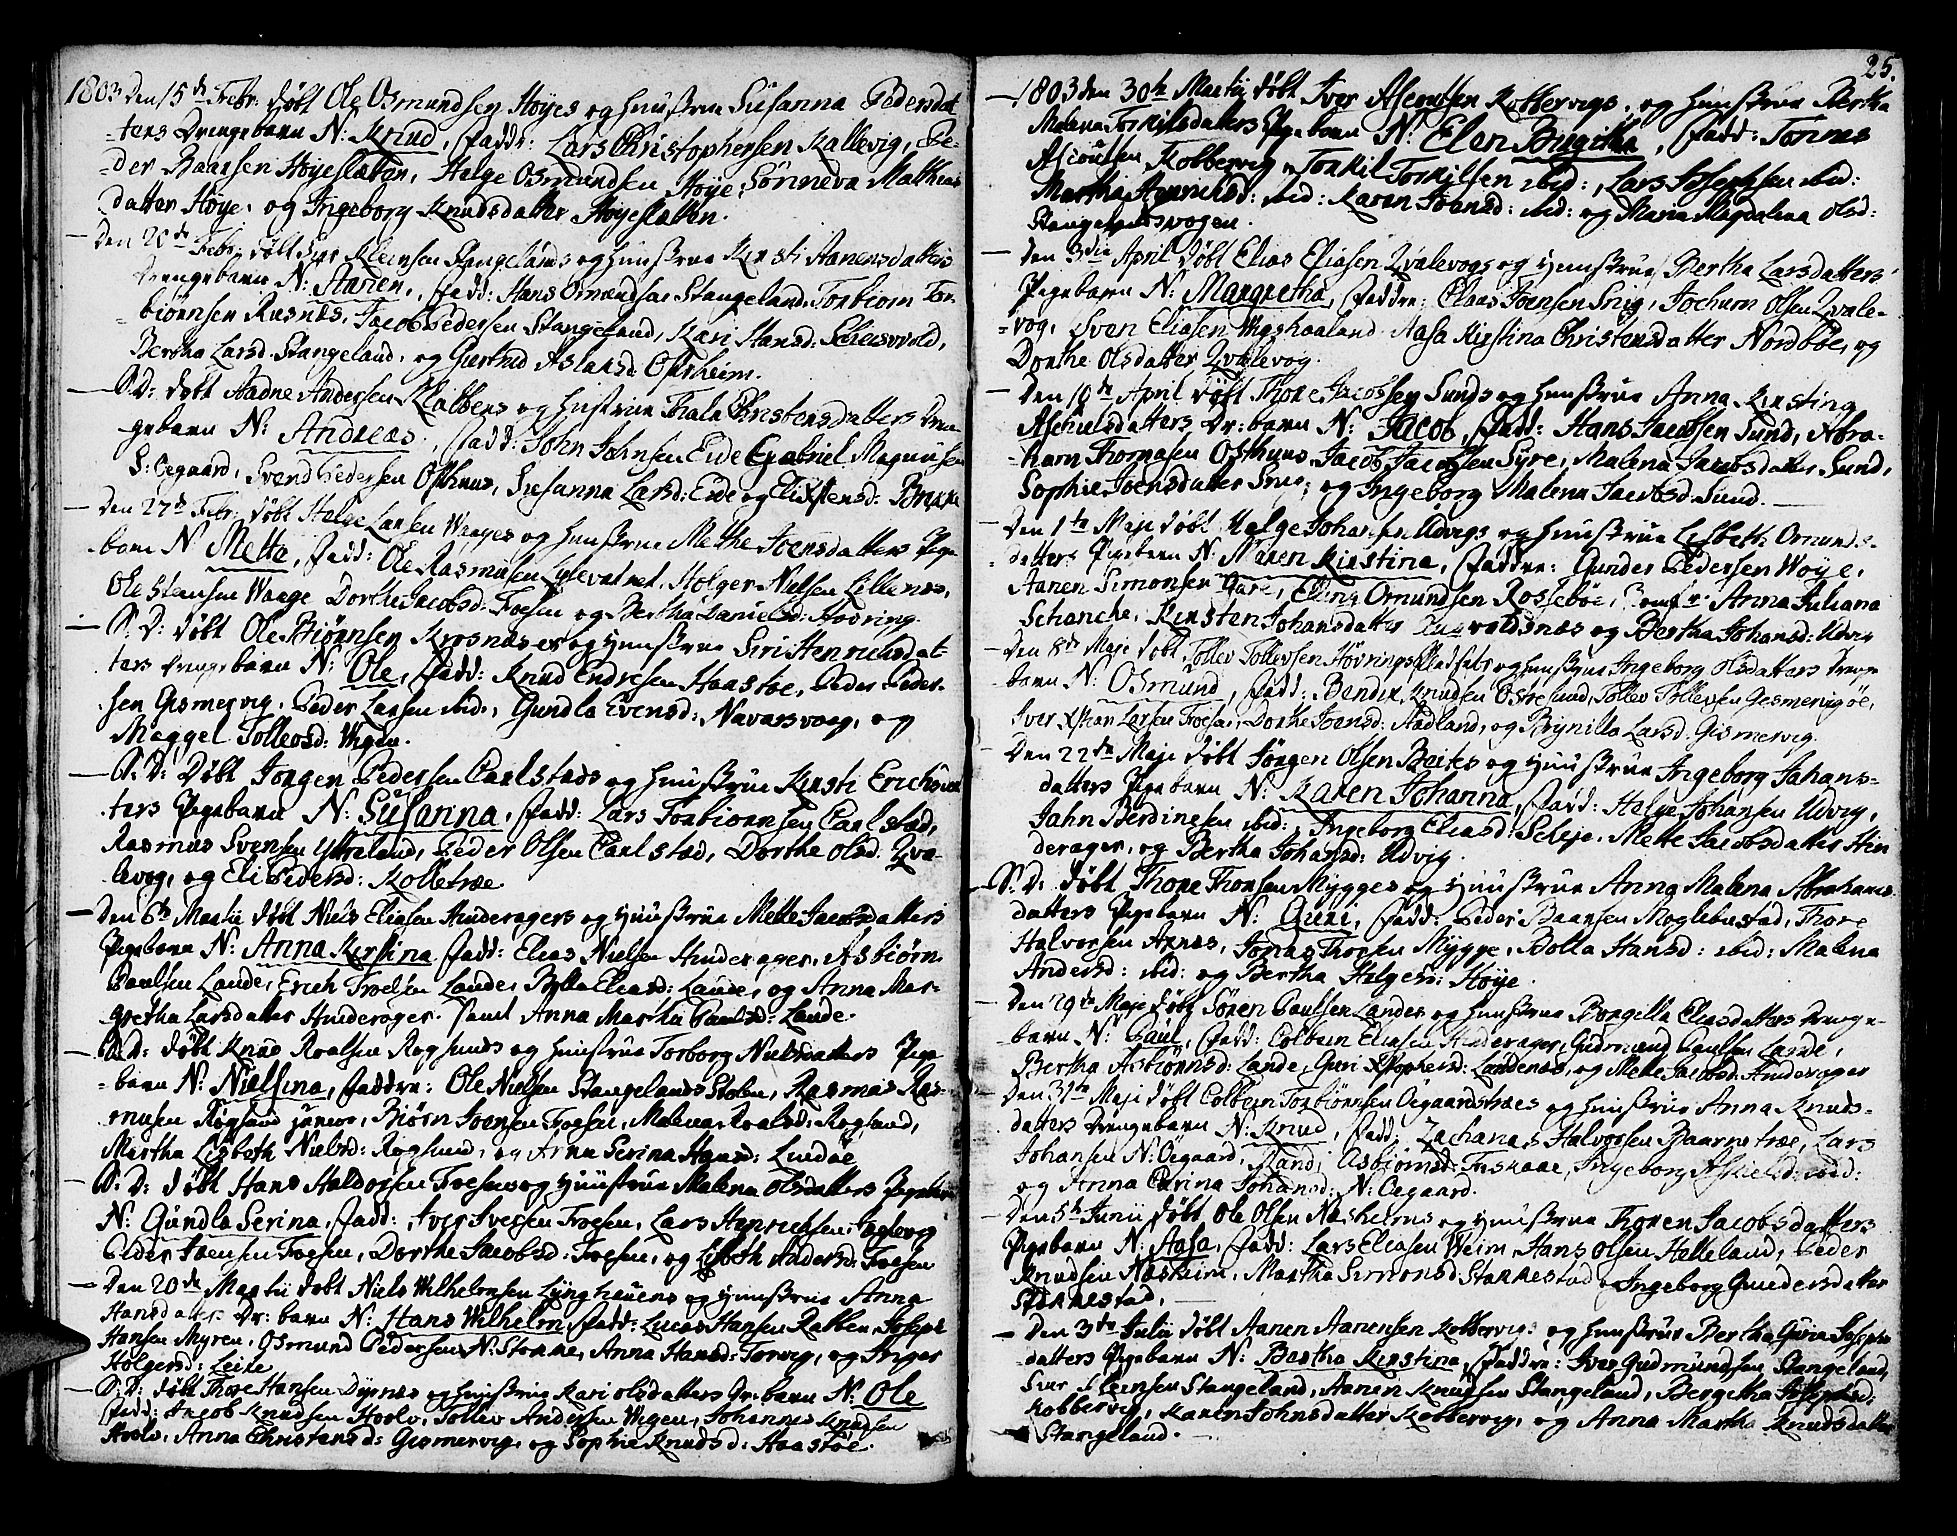 1803 den 15de Febr: døbt Ole Osmundsen Høyes og Hustrue Susanna Pedersdat-
-ters Drengebarn N: Knud, Faddr: Lars Christophersen Kallevig, Pe-
-der Baarsen Høyeslæten, Helge Osmundsen Høye, Sønneva Mathias
datter Høye, og Ingeborg Knudsdatter Høyeslætten.
Den 20de Febr: døbt Siur Kleinsen Stangelands og Hustrue Kirsti Aanensdatters
Drengebarn N: Aanen, Fadd: Hans Omundsen Stangeland, Torbiørn Tor-
-biørnsen Rusnes, Jacob Pedersen Stangeland, Kari Hansd:
Bertha Larsd. Stangeland, og Giertrud Aslaksd Ofsheim.
S: D: døbt Aadne Andersen Kalbens og Hustrue Thala Christensdatters Dren-
gebarn N: Andreas, Fadd: John Johnsen Eide Gabriel Magnusen
S: Oegaard, Svend Pedersen Osthuus, Susanna Larsd: Eide og Eli
Den 27de Febr: døbt Helge Larsen Waages og Hustrue Methe Joensdatters Pige
barn N Metta, Fadd: Ole Rasmusen, Holger Nielsen Lillenæs,
Ole Steensen Waage Dorthe Jacobsd: Foesen og Bertha Danielsd: Høvring.
S: D: døbt Ole Biørnsen Krosnæs og Hustrue Siri Henrichsdat-
ters Drengebarn N: Ole, Fadd: Knud Endresen Haastøe, Peder Peder-
sen Gismervig, Peder Larsen ibid:, Gundla Evensd: Navarsvaag, og
Maggel Tollevsd: Vigen.
S: D: døbt Jørgen Pedersen Carlstads og Hustrue Kirsti Erichsdat
ters Pigebarn N: Susanna, Fadd: Lars Torbiørnsen Carlstad,
Rasmus Svensen Yttreland, Peder Olsen Carlstad, Dorthe Olsd: Qva-
levog, og Eli Pedersd: Kolletræe
Den 6te Martii døbt Niels Eliasen Hinderagers og Hustrue Mette Jacobsdatters
Pigebarn N: Anna Kirstina Fadd: Elias Nielsen Hinderager, Asbiørn
Paulsen Lande, Erich Troelsen Lande, Bylla Eliasd: Lande, og Anna Mar-
gretha Larsdatter Hinderager. samt Anna Martha Paulsd: Lande.
S: D: døbt Knud Roalsen Røgsunds og Hustrue Torborg Nielsdatters Pige
-barn N: Nielsina, Faddre: Ole Nielsen Stangelands Stølen, Rasmus Ras-
musen Røgsund junior, Biørn Joensen Foesen, Malena Roalsd: Røgsund,
Martha Lisbeth Nielsd: Røgsund, og Anna Serina Hansd: Lindøe
S: D: døbt Hans Haldorsen Foesens og Hustrue Malena Olsdatters Pigebarn
N: Gundla Serina, Fadd: Iver Iversen Foesen, Lars Henrichsen
Peder Joensen Foesen, Dorthe Jacobsd: Foesen, og Lisbeth Andersd: Foesen
Den 20de Martii døbt Niels Wilhelmsen Lynghauens og Hustrue Anna
Hansdatters Dr: barn N: Hans Wilhelm Fadd: Lucas Hansen Kalben, Joseph
Hansen Myren, Osmund Pedersen N: Stokke, Anna Hansd: Torvig, og Inger
Holgersd: Leite
S: D: døbt Thore Hansen Dyrnes og Hustrue Kari Olsdatters Dr: barn N: Ole
Fadd: Jacob Knudsen Hovlv, Tollev Andersen Vigen, Johannes Knudsen
Anna Christensd: Gismervig, og Sophie Knudsd: Haastøe.
25.
1803 den 30te Martii døbt Iver Asioulsen Kobbervigs, og Hustrue Bertha
Malena Torkilsdatters Pigebarn N: Elen Birgitha, Fadd: Tønnes
Asioulsen Kobbervig, Torkil Torkilsen ibid:, Lars Josephsen ibid:
Martha Henrichsd: ibid: Karen Joensd: ibid: og Maria Magdalena Olsd:
Stangelandsvogen.
Den 3die April døbt Elias Eliasen Qvalevogs og Hustrue Bertha Larsdatters
Pigebarn N: Margretha, Faddre: Claas Joensen Snig, Jochum Olsen Qvale-
-vog, Sven Eliasen Wigshaaland Aasa Kirstina Christensdatter Nordbøe, og
Dorthe Olsdatter Qvalevog.
Den 10de April døbt Thore Jacobsen Sunds og Hustrue Anna Kirstina
Aschielsdatters Dr: barn N: Jacob, Fadd: Hans Jacobsen Sund, Abra-
-ham Thomasen Osthuus Jacob Jacobsen Syre, Malena Jacobsdatter Sund,
Sophie Joensdatter Snig, og Ingeborg Malena Jacobsd: Sund.
Den 1te Maji døbt Helge Johansen Udvigs og Hustrue Lisbeth Omunds-
datters Pigebarn N: Maren Kirstina, Faddre: Gunder Pedersen Woye,
Aanen Simonsen, Elling Omundsen Rossebøe, Jomfr: Anna Juliana
Schanche, Kirsten Johansdatter og Bertha Johansd: Udvig
Den 8de Maji døbt Tollev Tollevsen Høvrings Pladsets og Hustrue Ingeborg Olsdatters Drenge
barn N: Osmund, Fadd: Bendix Knudsen Østresund, Tollev Tollevsen Gismervigøe,
Iver Xstian Larsen Foesen, Dorthe Joensd: Aadland, og Brynilla Larsd: Gismervig.
Den 22de Maji døbt Jørgen Olsen Beites og Hustrue Ingeborg Johans-
datters Pigebarn N: Karen Johanna, Fadd: Helge Johansen Udvig,
John Berdinesen ibid:, Ingeborg Eliasd: Seleje, Mette Jacobsdatter Hin
derager, og Bertha Johansd: Udvig.
S: D: døbt Thore Thoresen Mygges og Hustrue Anna Malena Abrahams
datters Pigebarn N: Guri, Fadd: Peder Baarsen Moglebustad, Thore
Halvorsen Axnæs, Jonas Thoresen Mygge, Bolla Hansd: ibid: Malena
Andersd: ibid: og Bertha Helgesd: Høye.
Den 29de Maji døbt Søren Paulsen Landes og Hustrue Borgilla Eliasdatters Drenge-
barn N: Paul, Fadd: Colbein Eliasen Hinderager, Gudmund Paulsen Lande,
Bertha Asbiørnsd: Lande, Guri Xstophersd: Landenæs, og Mette Jacobsd: Hinderager
Den 31te Maji døbt Colbein Torbiørnsen Oegaardstræes og Hustrue Anna Knuds-
datters Drengebarn N: Knud, Fadd: Zacharias Halvorsen Baarnetræe, Lars
Johansen N: Oegaard, Randi Asbiørnsd:, Ingeborg Askielsd: ibid:
og Anna Carina Johansd: N: Oegaard.
Den 5te Junii døbt Ole Olsen Næsheims og Hustrue Thoren Jacobsdatters
Pigebarn N: Aasa, Fadd: Lars Eliasen Weim, Hans Olsen Helleland, Peder
Knudsen Næsheim, Martha Simonsd: Stakkestad og Ingeborg Gundersdatter
Stakkestad.
Den 3die Julii døbt Aanen Aanensen Kobbervigs og Hustrue Bertha Guria Josephs
datters Pigebarn N: Bertha Kirstina, Faddre: Iver Gudmundsen Stangeland,
Siur Kleensen Stangeland, Aanen Knudsen Stangeland, Bergetha Josephsd:
Kobbervig, Karen Johnsdatter Kobbervig, og Anna Martha Knudsdatter
Stangeland.